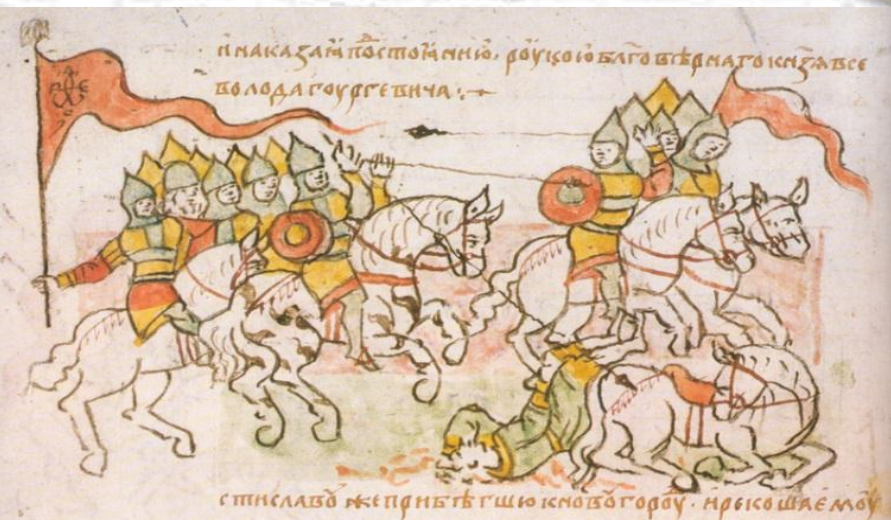 и наказа и по достоꙗнию · рꙋкою блг҃овѣрнаго кнѧзѧ все
волода гоургевича :·
стиславоу же прибѣгшю к новоугородоу · и рекоша емоу